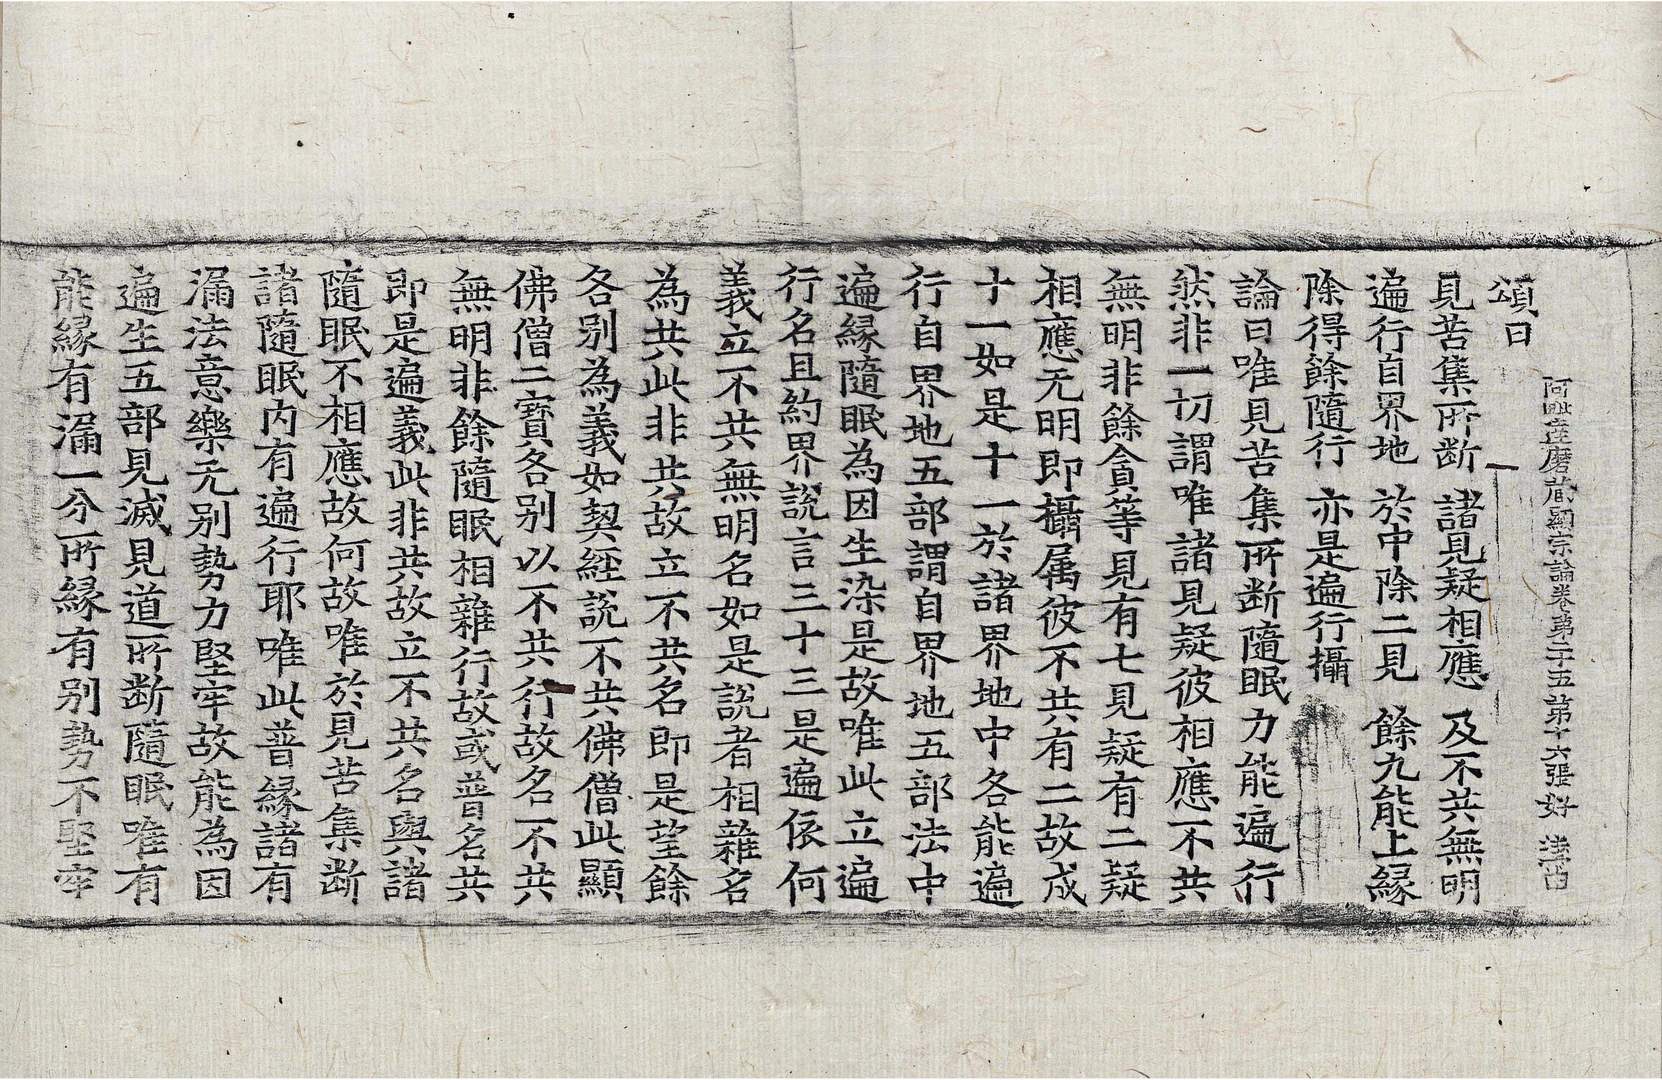 阿毗達磨藏顯宗論卷第二十五第十六張好
頌曰
見苦集所断 諸見疑相應 及不共無明
遍行自界地 於中除二見 餘九能上緣
除得餘隨行 亦是遍行攝
論曰唯見苦集所断隨眠力能遍行
然非一切謂唯諸見疑彼相應不共
無明非餘貪等見有七見疑有二疑
相應无明即攝属彼不共有二故成
十一如是十一於諸界地中各能遍
行自界地五部謂自界地五部法中
遍緣隨眠為因生染是故唯此立遍
行名且約界說言三十三是遍依何
義立不共無明名如是說者相雜名
為共此非共故立不共名即是望餘
各别為義如契經說不共佛僧此顯
佛僧二寳各别以不共行故名不共
無明非餘隨眠相雜行故或普名共
即是遍義此非共故立不共名與諸
隨眠不相應故何故唯於見苦集断
諸隨眠内有遍行耶唯此普緣諸有
漏法意樂无别勢力堅牢故能為因
遍生五部見滅見道所断隨眠唯有
能緣有漏一分所緣有别勢不堅牢